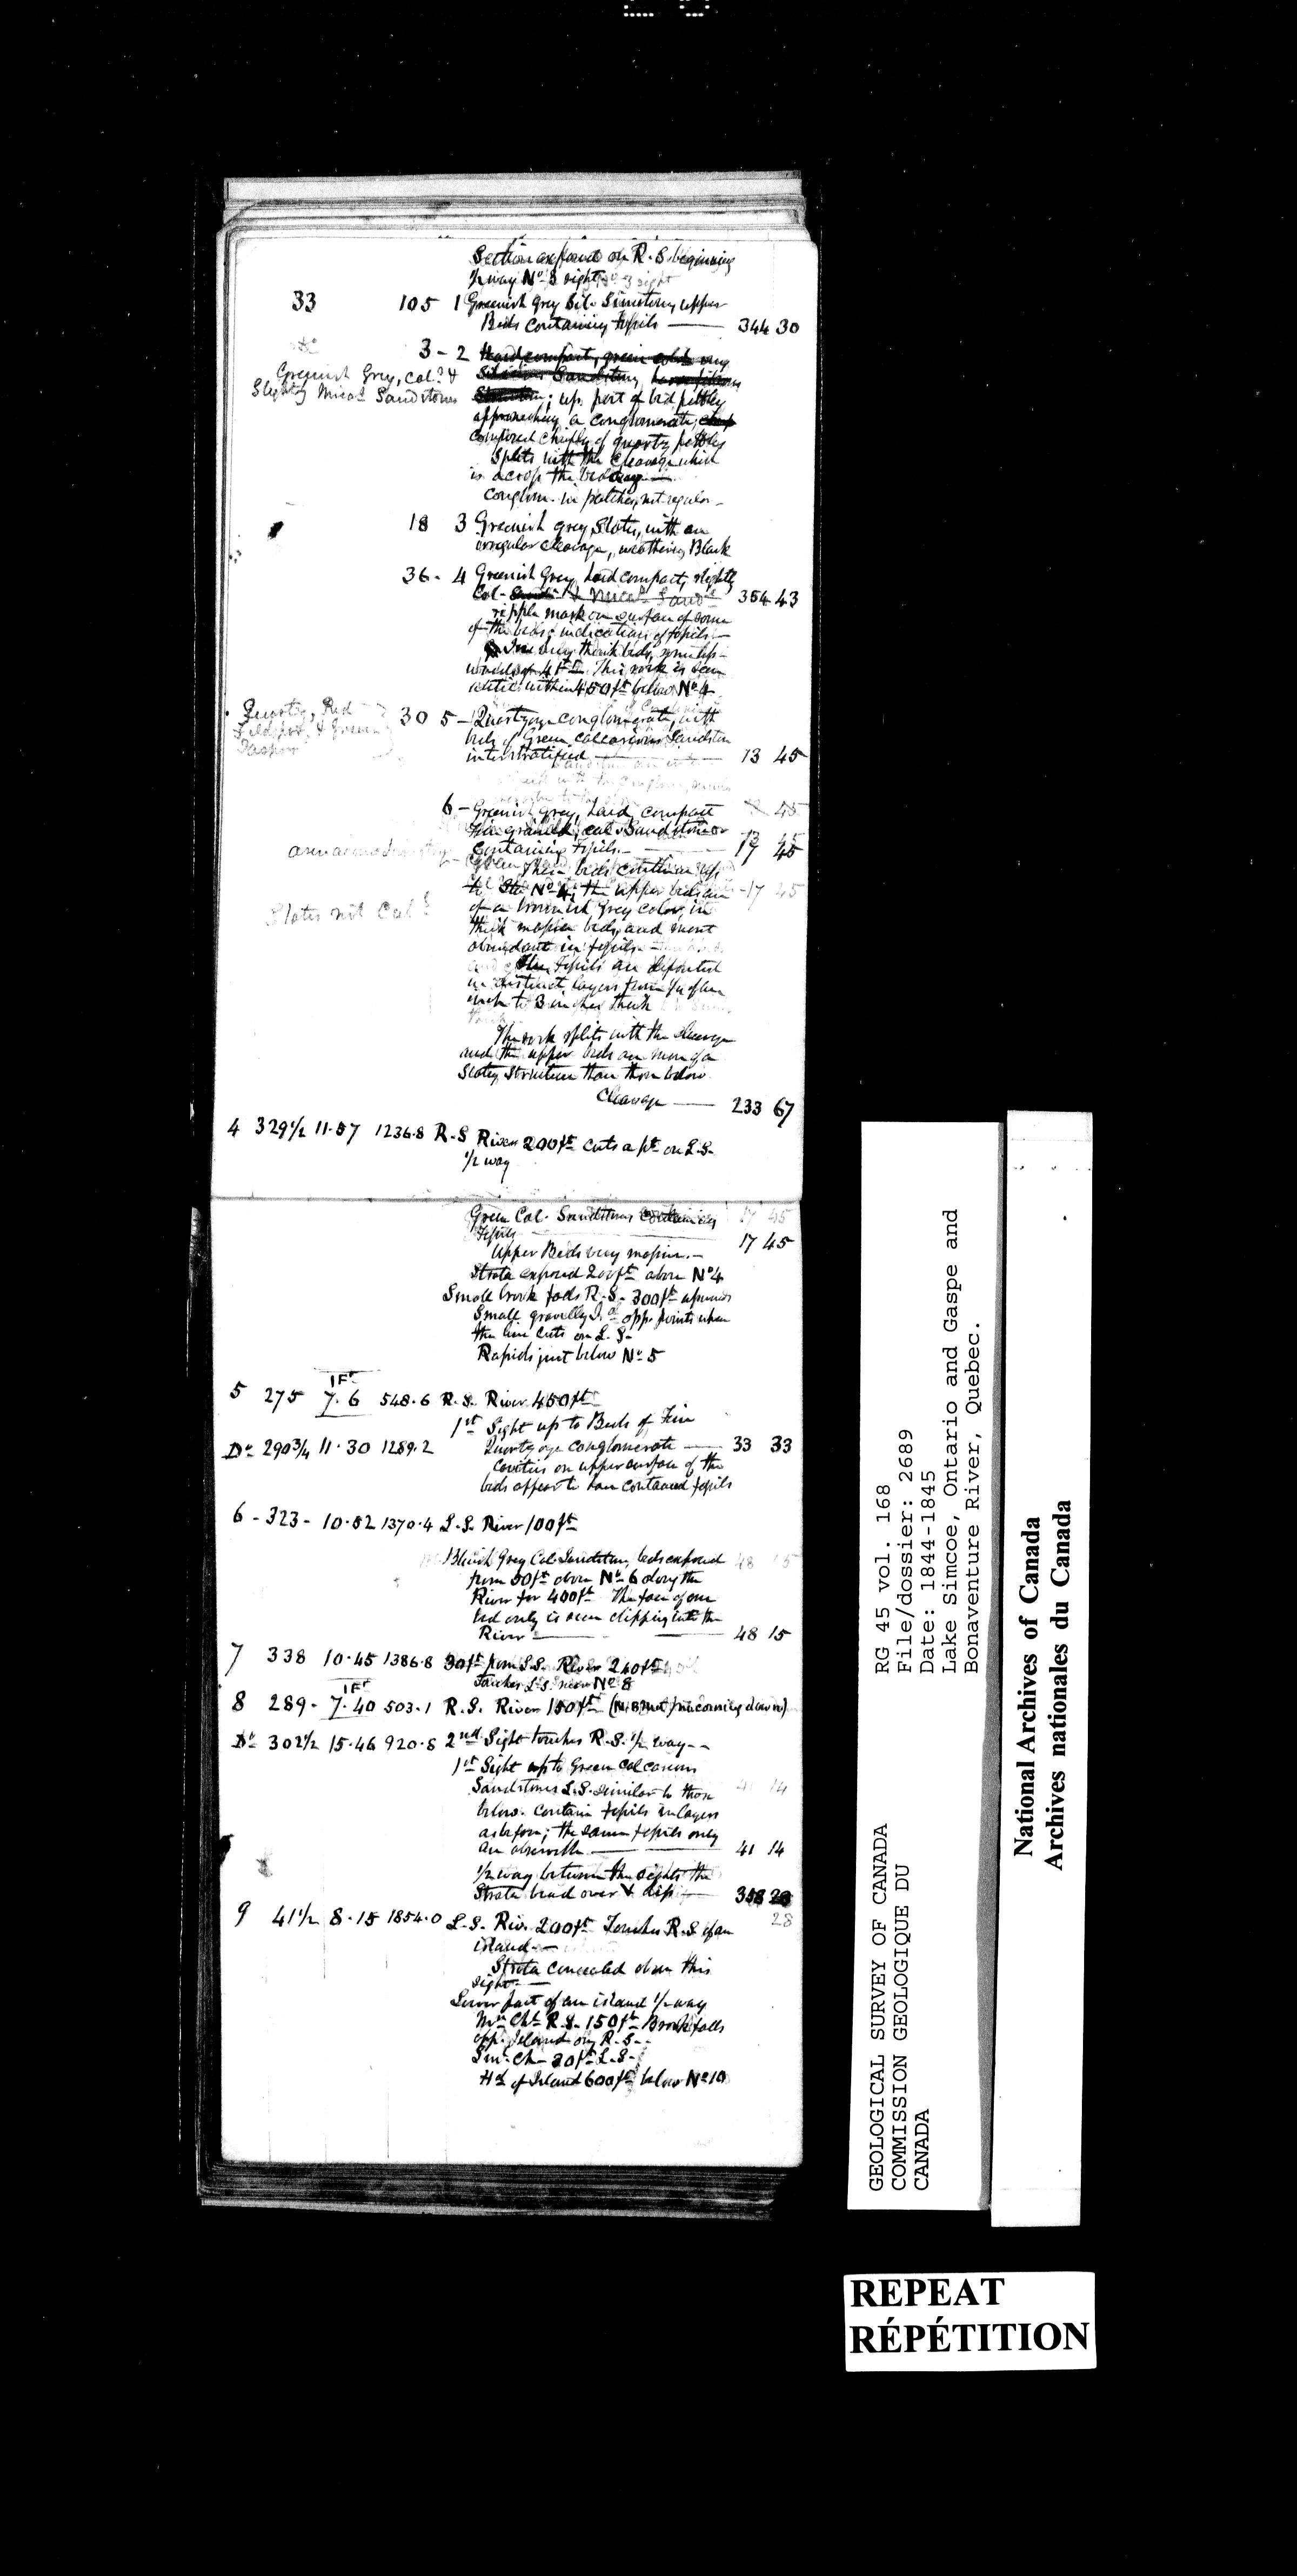 Section exposed on R.S. beginning
1/2 way No. 3 sight
33 105 1 Greenish Grey Sandstone, upper
Beds containing fossils — 344 30
3 - 2 Hard, compact, green
Greenish Grey, Cal. &
Slightly Micas. Sandstones
Sandstone,
; up. part of bed pebbly
approaching a conglomerate,
composed chiefly of quartz pebbles
Splits with the cleavage which
is across the bedding —
Conglom. in patches, not regular —
18 3 Greenish grey Slates, with an
irregular cleavage, weathering Black
36 - 4 Greenish Grey hard compact, slightly
Cal - & Micas. Sands. 354 43
ripple mark on surface of some
of the beds; indications of fossils. —
In very thick beds, sometimes
This rock is seen
within 450 ft below No. 4
Quartz, Red
Feldspar, & Green
Jasper
30 5 — Quartzose conglomerate, with
beds of Green calcareous Sandstone
interstratified — 13 45
6 — Greenish grey, hard, compact 45
fine grained, cal. Sandstone 13 45
Containing fossils. — 17 45
These beds continue up
to No. 4; the upper beds are - 17 45
Slates not Cal.
of a brownish grey color, in
thick massive beds, and most
abundant in fossils
The fossils are deposited
in distinct layers from 1/4 of an
inch to 3 inches thick
The rock splits with the cleavage
and the upper beds are more of a
Slaty Structure than those below
Cleavage — 233 67
4 329 1/2 11.57 1236.8 R.S River 200 ft cuts a pt. on L.S.
1/2 way
Green Cal. Sandstones containing 17 45
fossils 17 45
Upper Beds very massive. —
Strata exposed 200 ft above No. 4
Small brook falls R.S. 300 ft upwards
Small gravelly Id. opp. points when
the line cuts on L.S.
Rapids just below No. 5
1 Ft
5 275 7.6 548.6 R.S. River 450 ft
1st Sight up to Beds of Fine
Do. 290 3/4 11.30 1289.2 Quartzose conglomerate — 33 33
Cavities on upper surface of the
beds appear to have contained fossils
6 - 323 - 10.52 1370.4 L.S. River 100 ft
Bluish Grey Cal. Sandstone, beds exposed 48 15
from 50 ft above No. 6 along the
River for 400 ft The face of one
bed only is seen dipping into the
River — 48 15
7 338 10.45 1386.8 30 ft from L.S. River 240 ft
Touches L.S. near No. 8
1 Ft
8 289 - 7.40 503.1 R.S. River 150 ft
Do. 302 1/2 15.46 920.8 2nd Sight touches R.S. 1/2 way --
1st Sight up to Green calcareous
Sandstones L.S. similar to those 41 14
below. contain fossils in layers
as before; the same fossils only
are observable — 41 14
1/2 way between the sights the
Strata bend over & dip — 358 28
28
9 41 1/2 8.15 1854.0 L.S. Riv. 200 ft Touches R.S of an
island —
Strata concealed above this
sight. —
Lower part of an island 1/2 way
Mn Ch. R.S. 150 ft Brook falls
opp. Island on R.S. -
Sml. Ch - 20 ft L.S -
Hd. of Island 600 ft below No. 10
GEOLOGICAL SURVEY OF CANADA
COMMISSION GEOLOGIQUE DU
CANADA
RG 45 vol. 168
File/dossier: 2689
Date: 1844-1845
Lake Simcoe, Ontario and Gaspe and
Bonaventure River, Quebec.
National Archives of Canada
Archives nationales du Canada
REPEAT
RÉPÉTITION